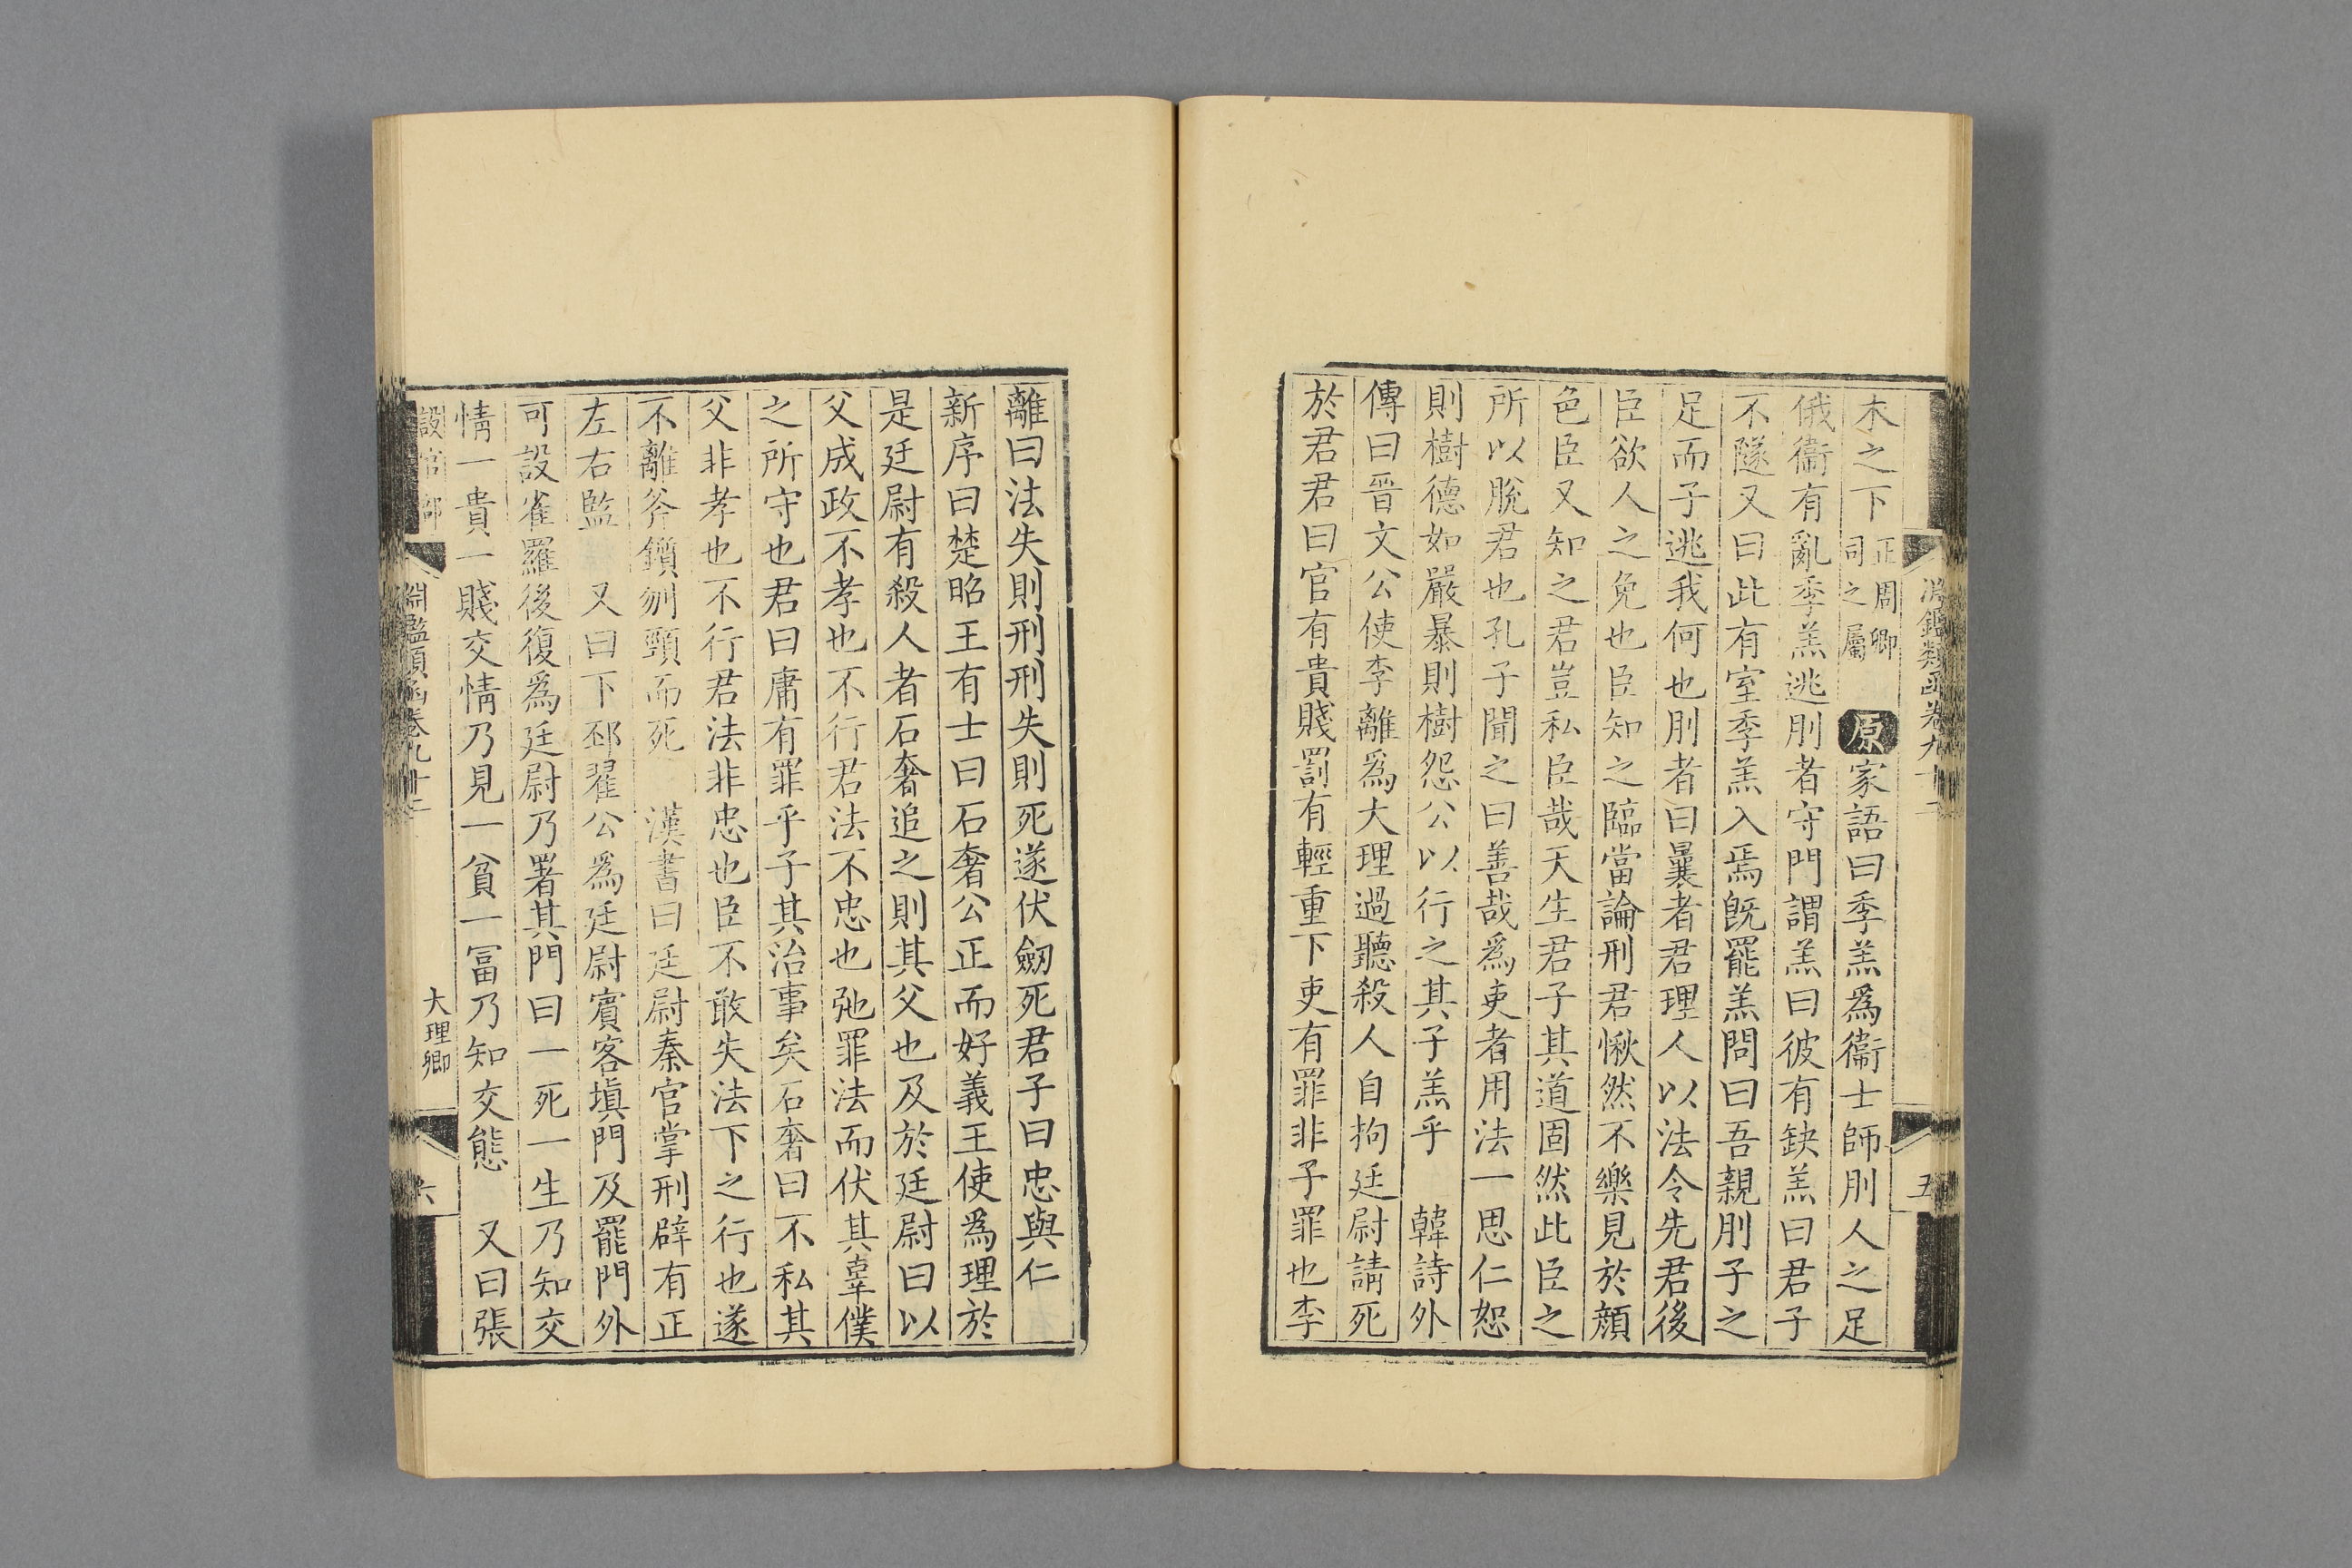 淵鑑類函卷九十二
五
木之下正周卿司之屬 原家語曰季羔爲衞士師刖人之足
俄衞有亂季羔逃刖者守門謂羔曰彼有缺羔曰君子
不隧又曰此有室季羔入焉旣罷羔問曰吾親刖子之
足而子逃我何也刖者曰曩者君理人以法令先君後
臣欲人之免也臣知之臨當論刑君愀然不樂見於顏
色臣又知之君豈私臣哉天生君子其道固然此臣之
所以脫君也孔子聞之曰善哉爲吏者用法一思仁恕
則樹德如嚴暴則樹怨公以行之其子羔乎 韓詩外
傳曰晉文公使李離爲大理過聽殺人自拘廷尉請死
於君君曰官有貴賤罰有輕重下吏有罪非子罪也李
離曰法失則刑刑失則死遂伏劒死君子曰忠與仁
新序曰楚昭王有士曰石奢公正而好義王使爲理於
是廷尉有殺人者石奢追之則其父也及於廷尉曰以
父成政不孝也不行君法不忠也弛罪法而伏其辜僕
之所守也君曰庸有罪乎子其治事矣石奢曰不私其
父非孝也不行君法非忠也臣不敢失法下之行也遂
不離斧鑕刎頸而死 漢書曰廷尉秦官掌刑辟有正
左右監 又曰下邳翟公爲廷尉賓客塡門及罷門外
可設雀羅後復爲廷尉乃署其門曰一死一生乃知交
情一貴一賤交情乃見一貧一冨乃知交態 又曰張
設官部
淵鑑類函卷九十二
大理卿
六